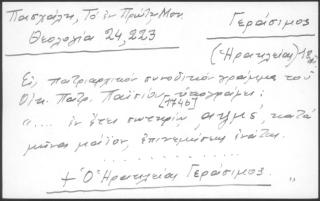 Πασχάλη, Τό ἐν Πρώτῃ Μον.
Θεολογία 24, 223
Γεράσιμος
(Ἡρακλείας) 18
Εἰς πατριαρχικόν συνοδικόν γράμμα τοῦ
Οἰκ. Πατρ. Παϊσίου ὑπογράφει:
[1746]
".... ἐν ἔτει σωτηρίῳ αψμϛ΄, κατά
μῆνα μάϊον, ἐπινεμήσεως ἐνάτης.
. . . . . . . . . . . .
+ Ὁ Ἡρακλείας Γεράσιμος. "